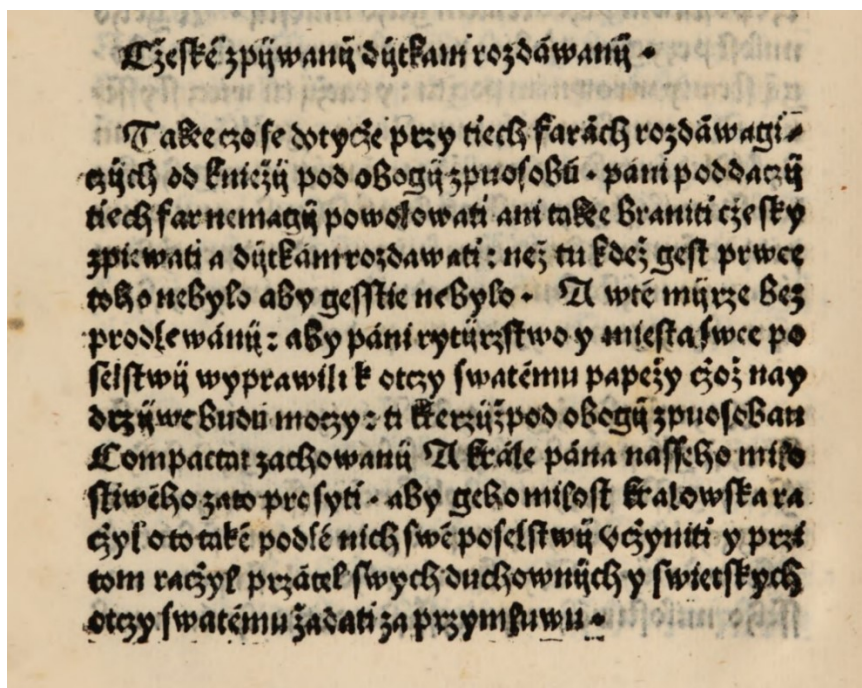 Cžeské zpijwanij dijtkam rozdáwanij •
Take czo se dotyčže przy tiech farách rozdáwagi⸗
czých od kniežij pod obogij zpuosobú • páni poddaczij
tiech far nemagij powolowati ani take braniti cžesky
zpiewati a dijtkám rozdawati : než tu kdež gest prwce
toho nebylo aby gesstie nebylo • A wté mijrze bez
prodléwánij : aby páni rytijrzstwo y miesta swee po
selstwij wyprawili k otczy swatému papežy cžož nay
drzijwe budú moczy : ti kterzijž pod obogij zpuosoban
Compactat zachowanij A krále pána nasseho milo
stiwého zato prosyti • aby geho milost kralowska ra
cžyl o to také podlé nich swé poselstwij vcžyniti y przi
tom racžyl przátel swych duchownijch y swietskych
otczy swatému žadati za przymluwu •